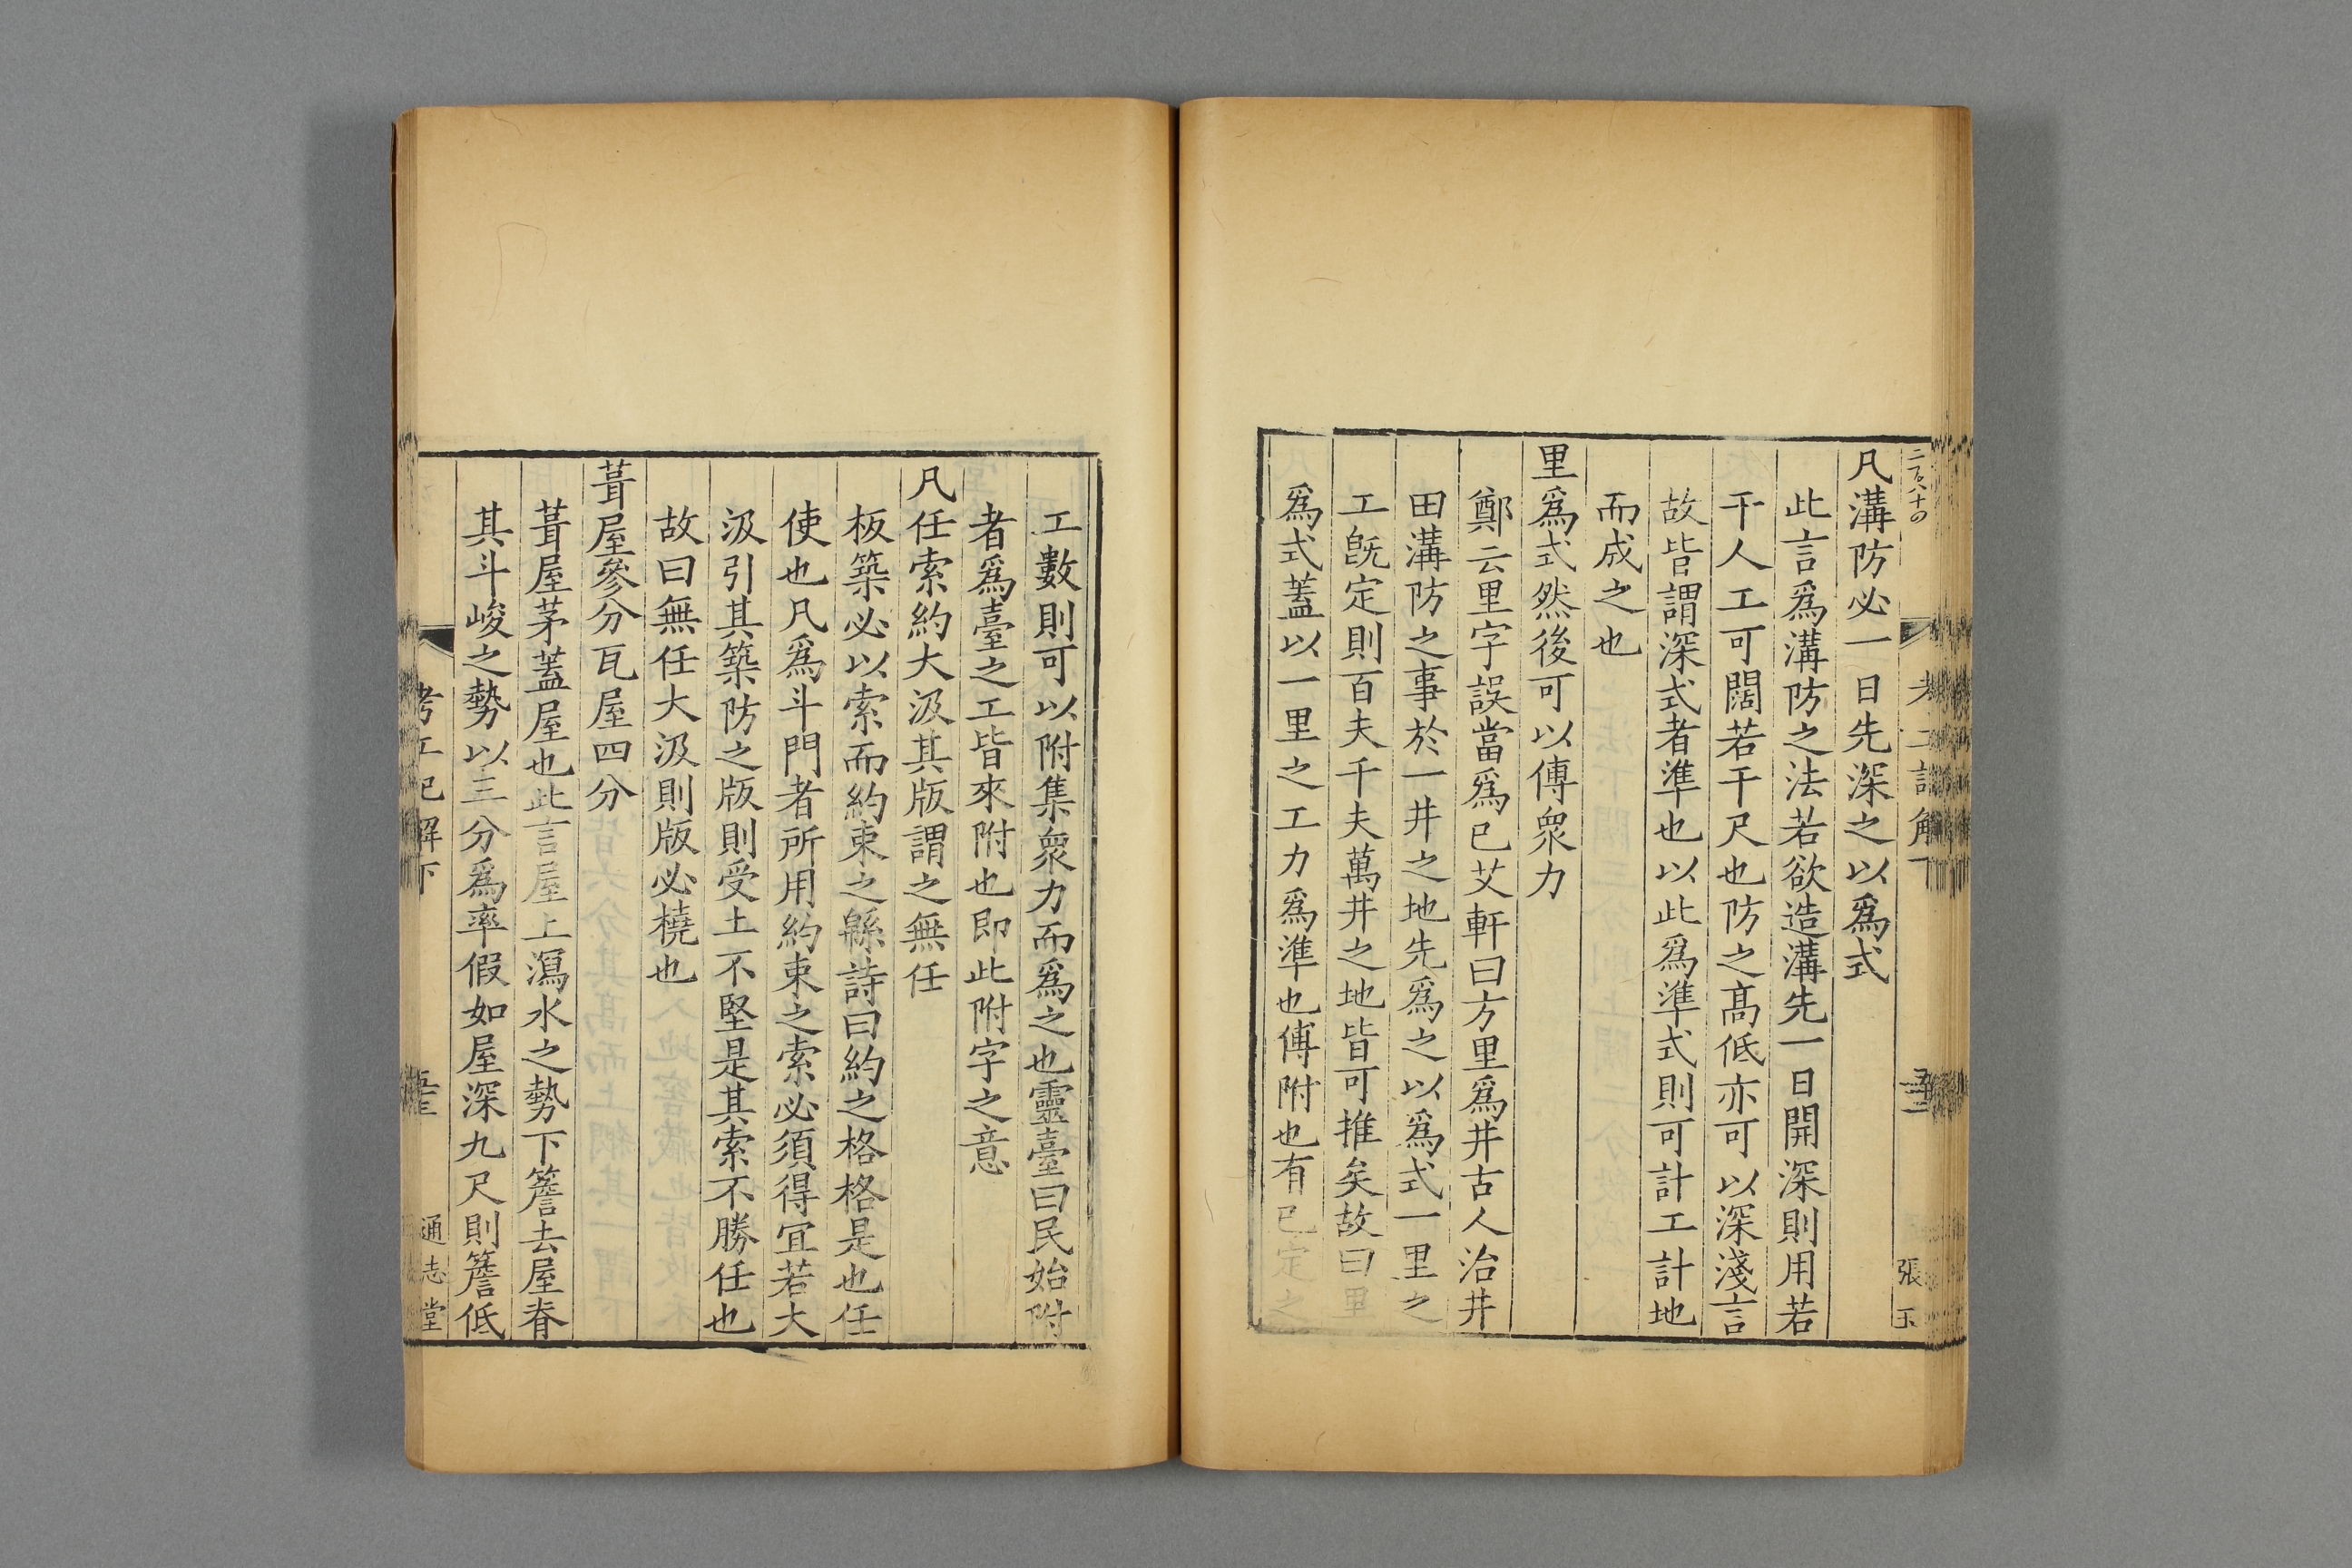 二百八十四
考工記解下
張玉
凡溝防必一日先深之以爲式
此言爲溝防之法若欲造溝先一日開深則用若
干人工可闊若干尺也防之高低亦可以深淺言
故皆謂深式者準也以此爲準式則可計工計地
而成之也
里爲式然後可以傅衆力
鄭云里字誤當爲已艾軒曰方里爲井古人治井
田溝防之事於一井之地先爲之以爲式一里之
工旣定則百夫千夫萬井之地皆可推矣故曰里
爲式蓋以一里之工力爲準也傅附也有已定之
工數則可以附集衆力而爲之也靈臺曰民始附
者爲臺之工皆來附也即此附字之意
凡任索約大汲其版謂之無任
板築必以索而約束之緜詩曰約之格格是也任
使也凡爲斗門者所用約束之索必須得宜若大
汲引其築防之版則受土不堅是其索不勝任也
故曰無任大汲則版必橈也
葺屋參分瓦屋四分
葺屋茅蓋屋也此言屋上瀉水之勢下簷去屋脊
其斗峻之勢以三分爲率假如屋深九尺則簷低
考工記解下
通志堂